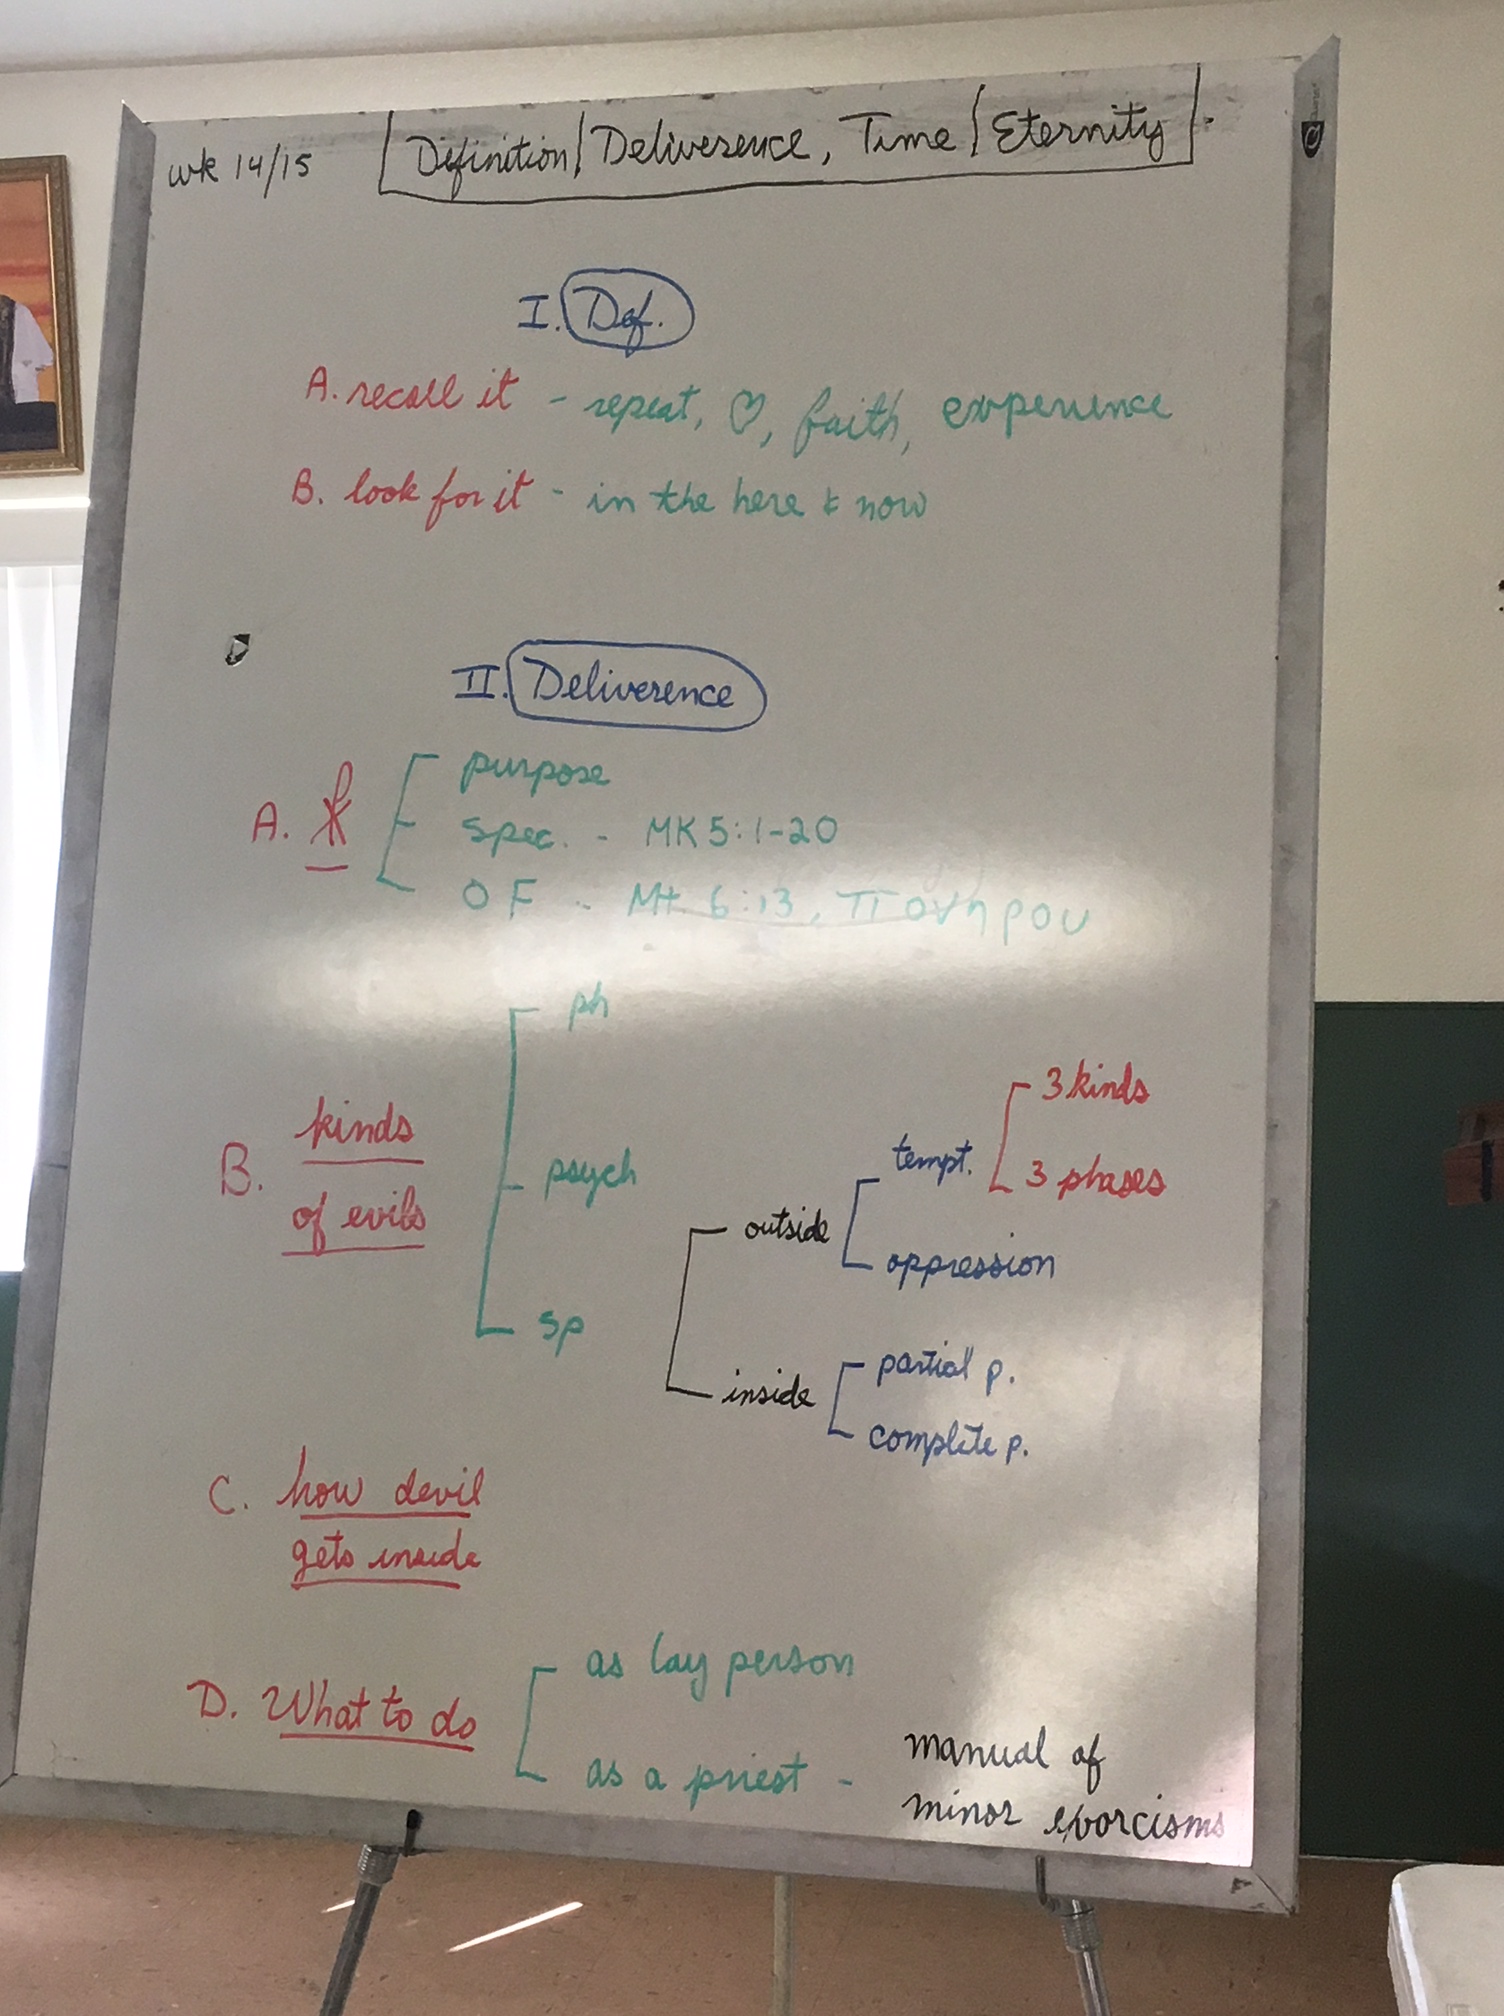 wk 14/15 Definition/Deliverence, Time/Eternity
I. Def.
A. recall it - repeat, ♡, faith, experience
B. look for it - in the here & now
II. Deliverence
A. ☧
purpose
spec. - MK 5:1-20
OF - Mt. 6:13, πονηρου
B. kinds
of evils
ph
psych
sp
outside
tempt.
3 kinds
3 phases
oppression
inside
partial p.
complete p.
C. how devil
gets inside
D. What to do
as lay person
as a priest - manual of
minor exorcisms